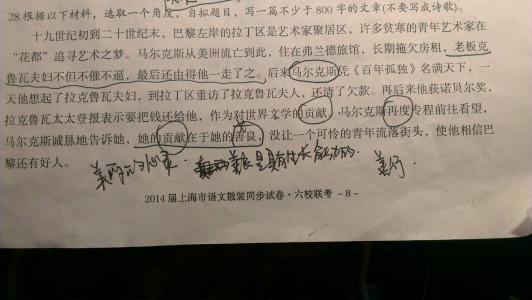 28.根据以下材料，选取一个角度，自拟题目，写一篇不少于 800 字的文章(不要写成诗歌)。
十九世纪初到二十世纪末，巴黎左岸的拉丁区是艺术家聚居区，许多贫寒的青年艺术家在
“花都”追寻艺术之梦。马尔克斯从美洲流亡到此，住在弗兰德旅馆，长期拖欠房租，老板克
鲁瓦夫妇不但不催不逼，最后还由得他一走了之。后来马尔克斯凭《百年孤独》名满天下，一
天他想起了拉克鲁瓦夫妇，到拉丁区重访了拉克鲁瓦夫人，还清了欠款。再后来他获诺贝尔奖，
拉克鲁瓦太太登报表示要把钱还给他，作为对世界文学的贡献。马尔克斯再度专程前往看望，
马尔克斯诚恳地告诉她，她的贡献在于她的善良，没让一个可怜的青年流落街头，使他相信巴
黎还有好人。
美丽的心灵 善良是具有生长能力的. 善行.
2014 届上海市语文散装同步试卷·六校联考 ~8~